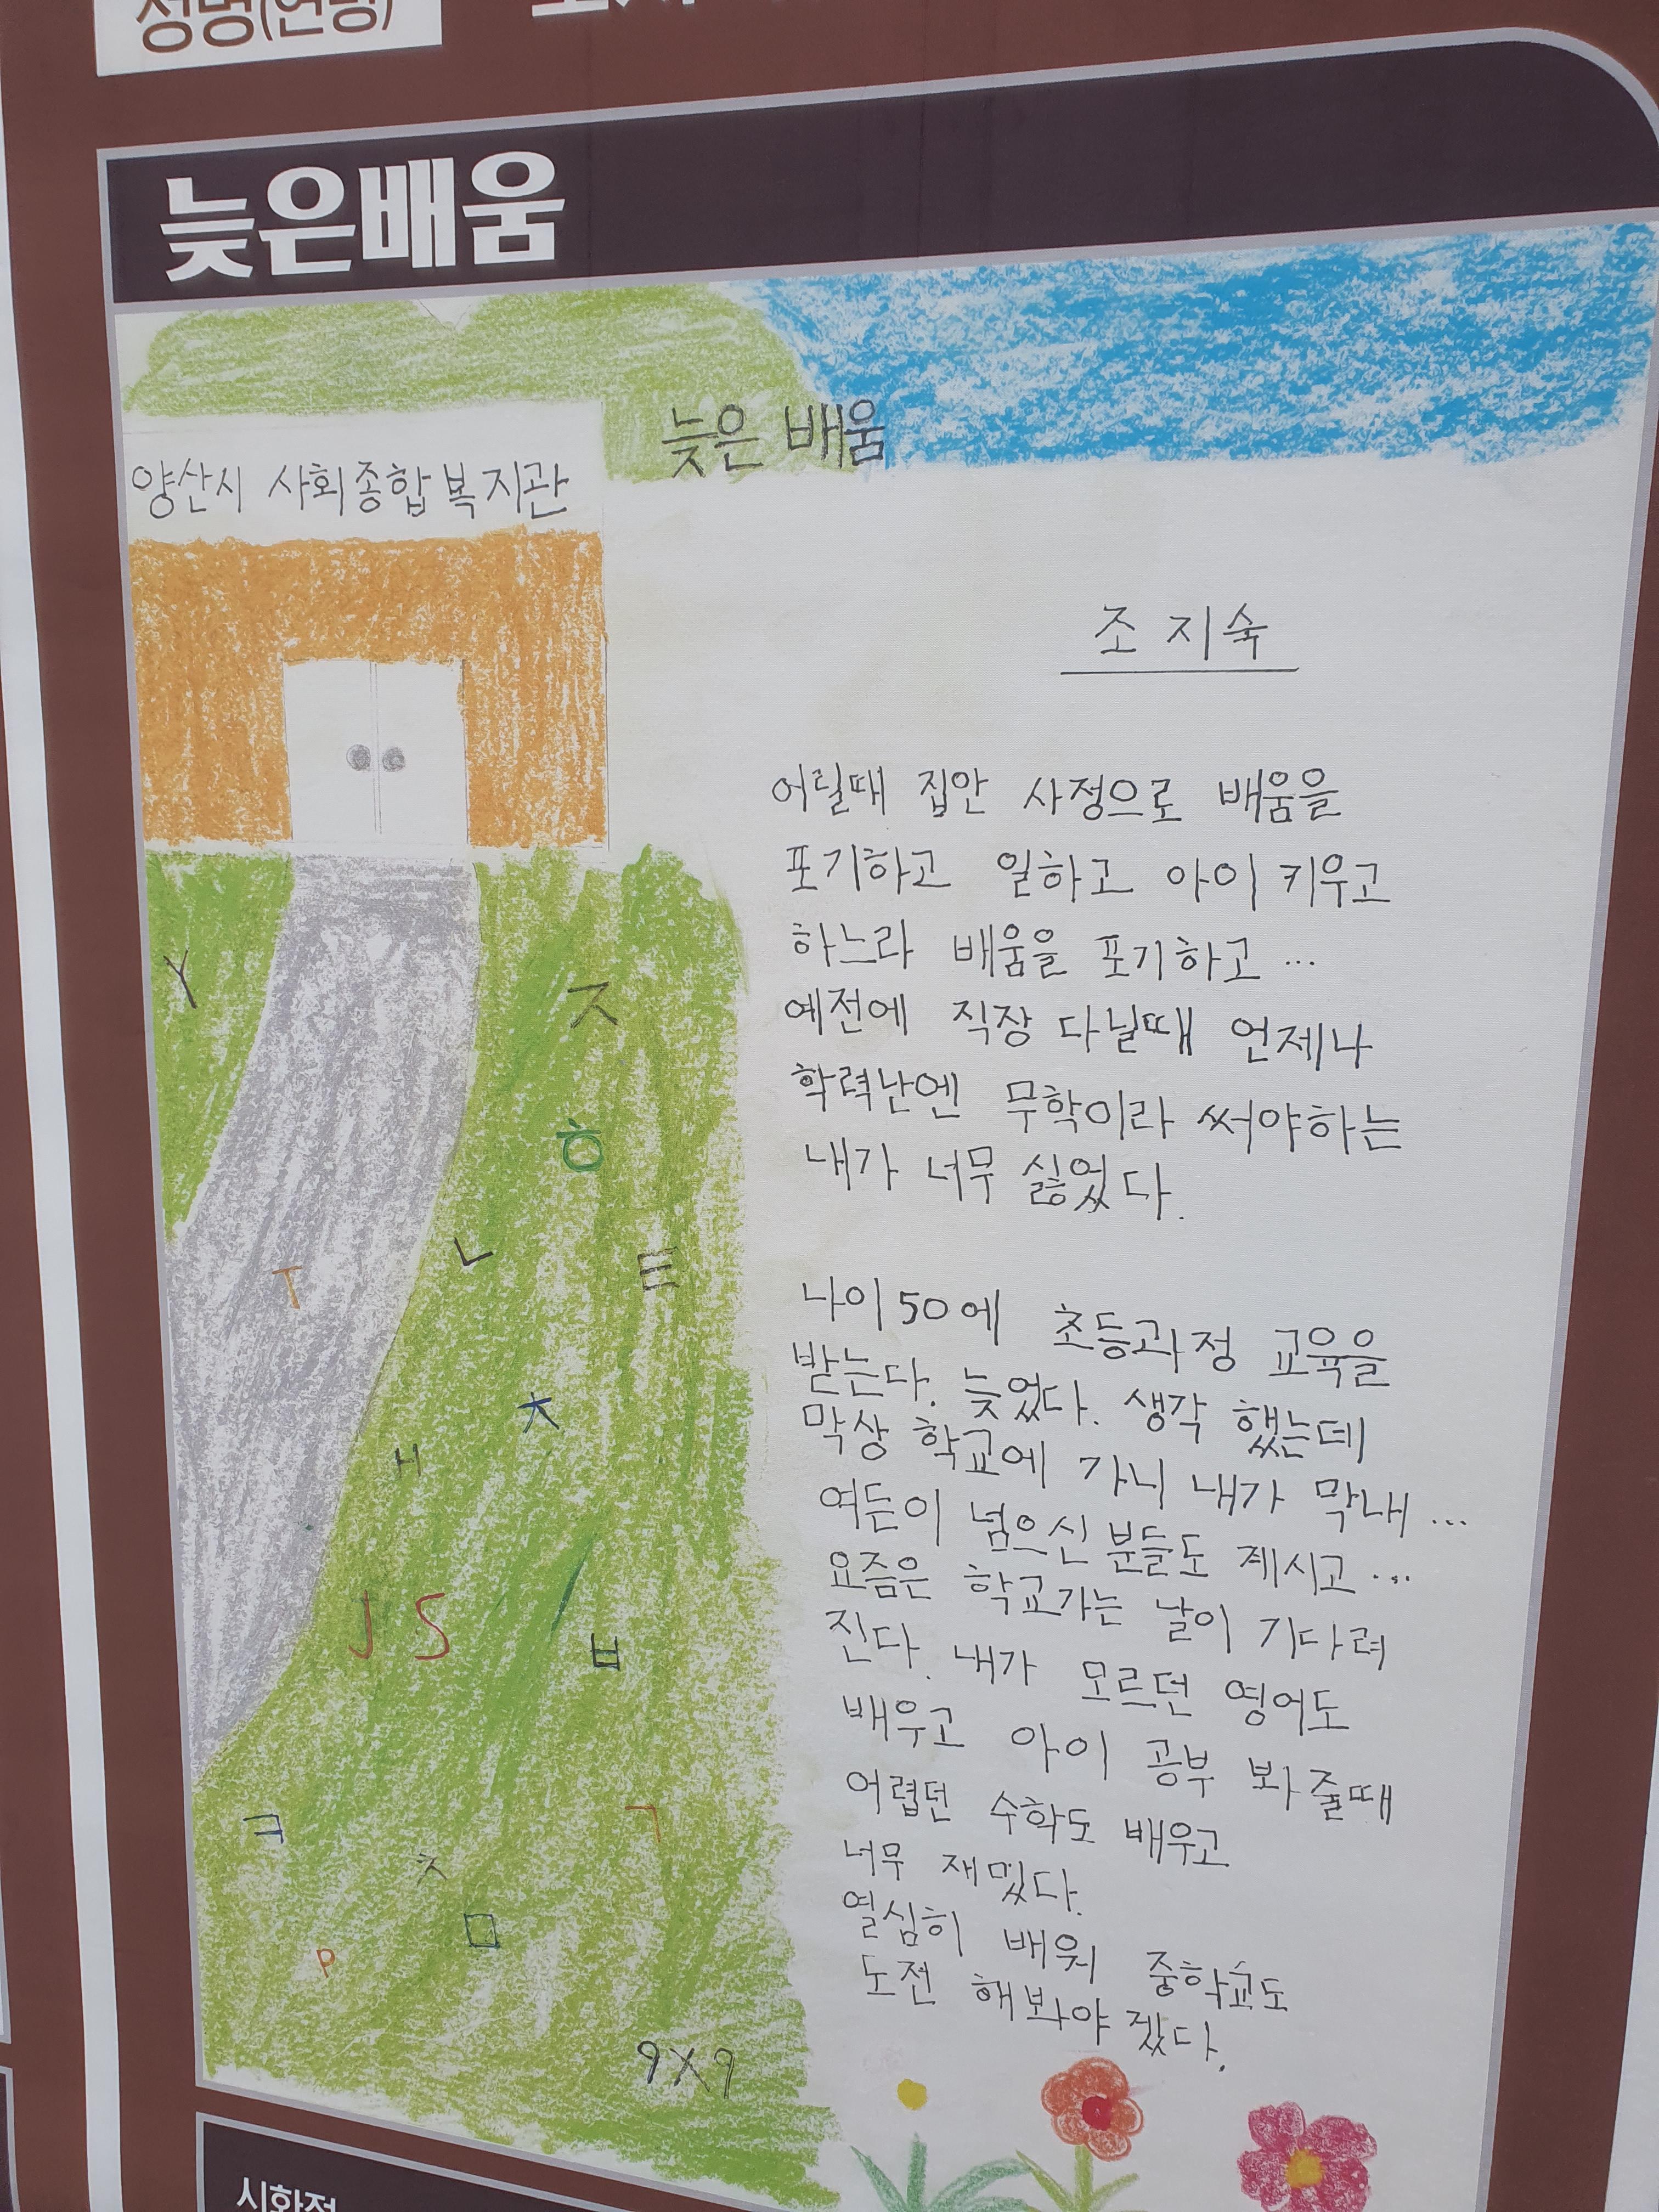 성명(연령)
늦은배움
늦은 배움
양산시 사회종합복지관
조지숙
어릴때 집안 사정으로 배움을
포기하고 일하고 아이 키우고
하느라 배움을 포기하고 ...
예전에 직장 다닐때 언제나
학력난엔 무학이라 써야하는
내가 너무 싫었다.
나이 50에 초등과정 교육을
받는다. 늦었다. 생각 했는데
막상 학교에 가니 내가 막내 ...
여든이 넘으신 분들도 계시고 ...
요즘은 학교가는 날이 기다려
진다. 내가 모르던 영어도
배우고 아이 공부 봐 줄때
어렵던 수학도 배우고
너무 재밌다.
열심히 배워 중학교도
도전 해봐야 겠다.
Y
ㅈ
ㅎ
ㄴ
ㅌ
T
ㅊ
H
J S
/
ㅂ
ㅋ
ㄱ
ㅊ
ㅁ
P
9X9
시화전